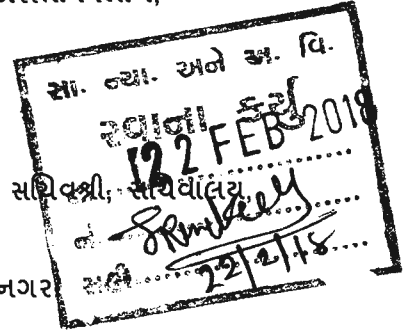 સા. ન્યા. અને અ. વિ.
રવાના કર્યું
22 FEB 2018
સચિવશ્રી, સચિવાલય,
નં
નગર સહી
22/2/18